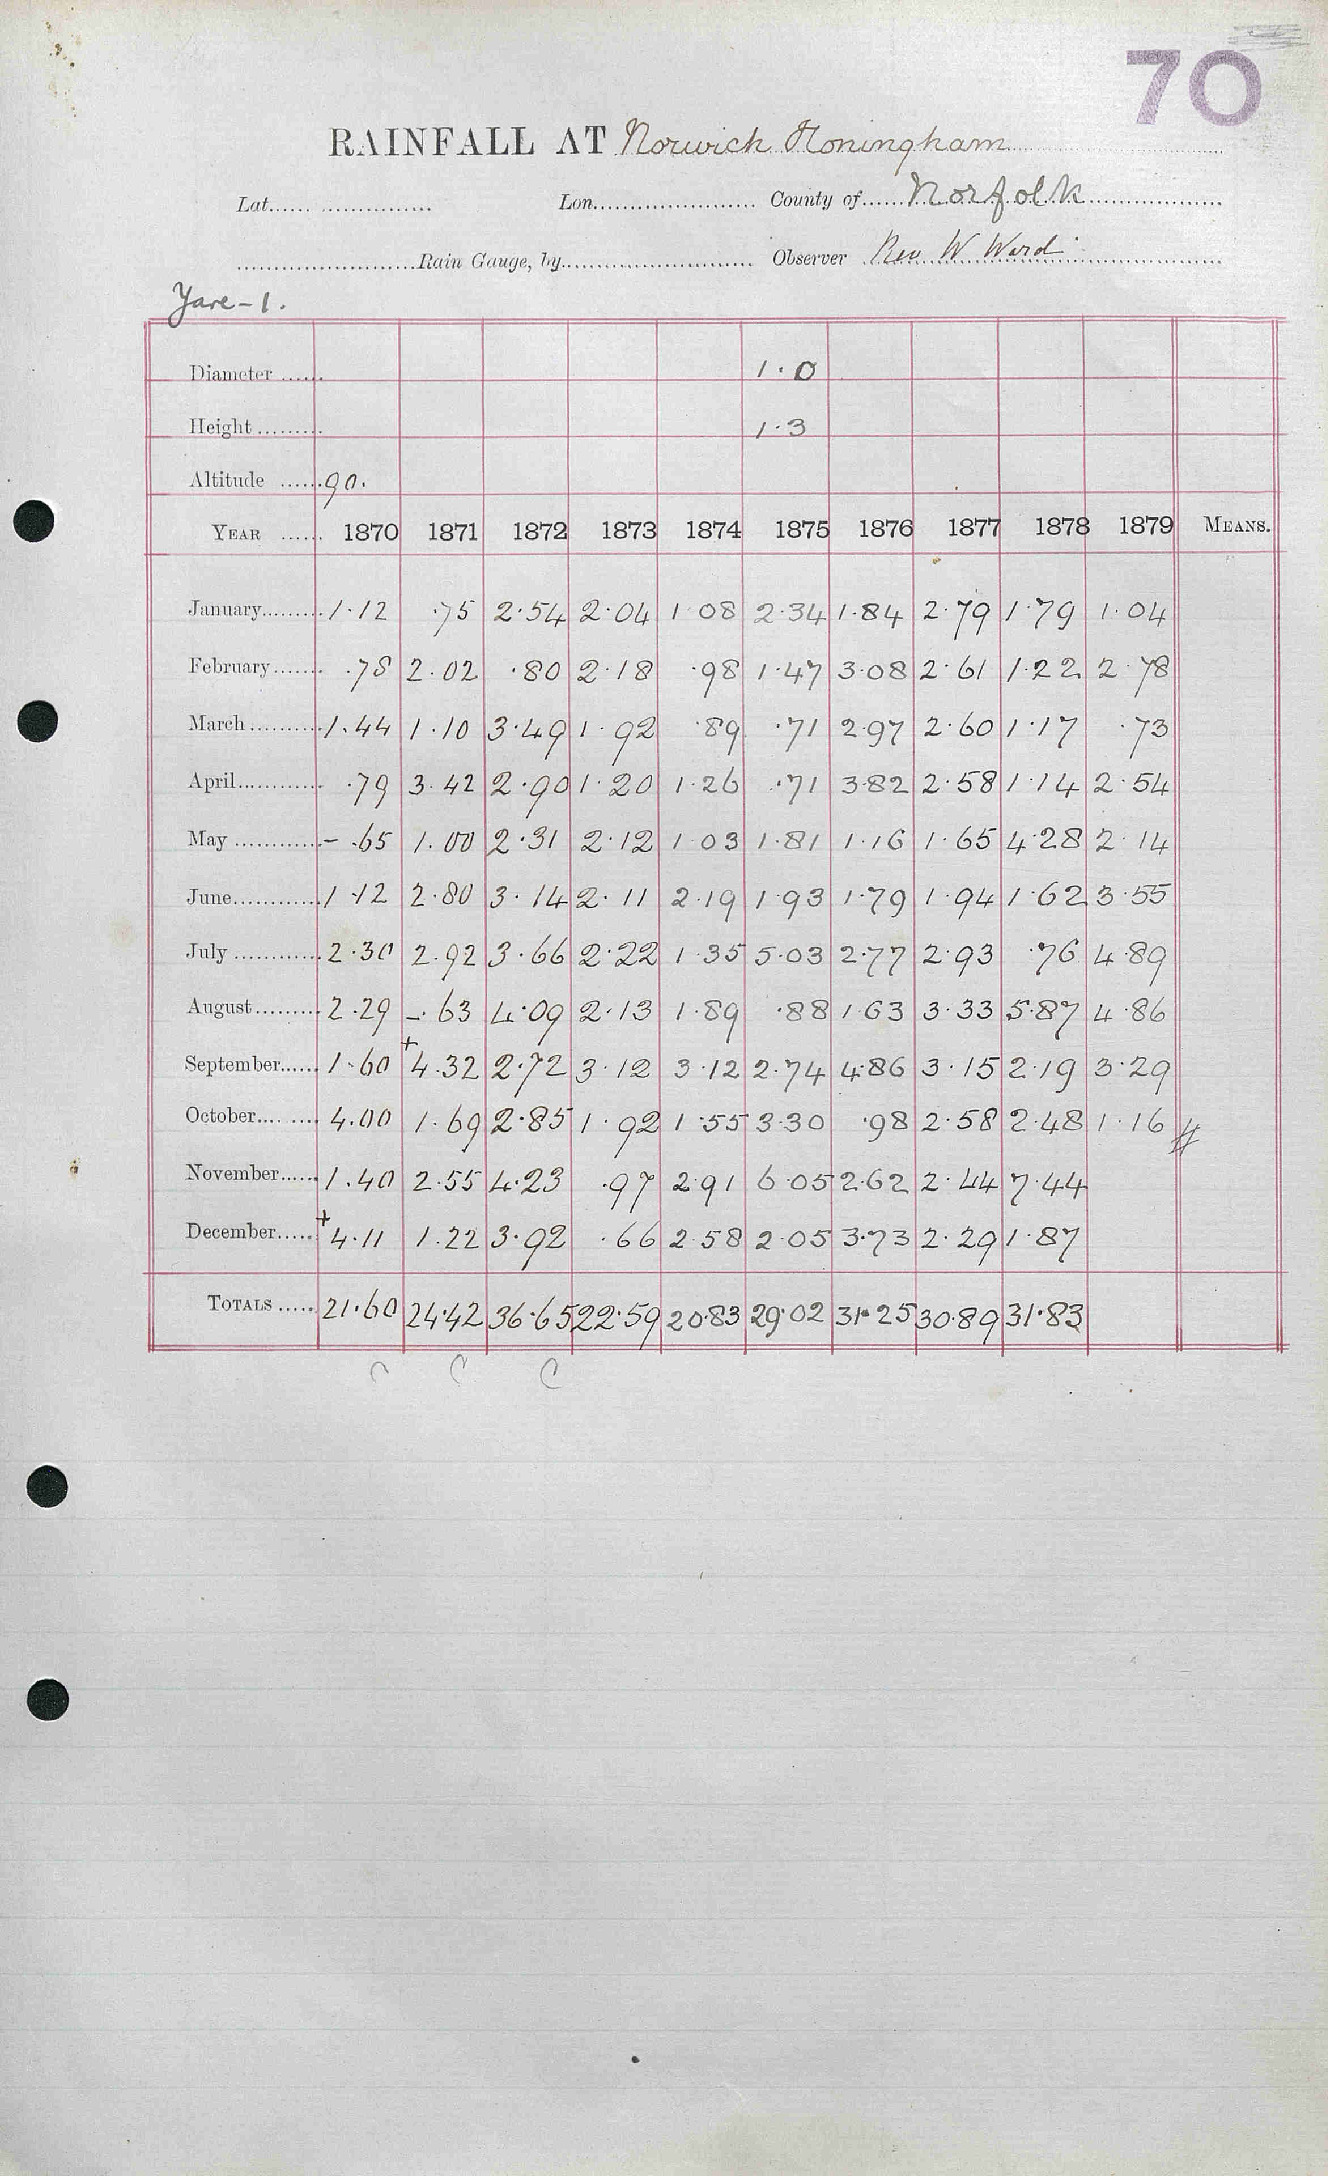 70
RAINFALL AT Norwich Honingham
Lat. Lon. County of Norfolk
Rain Gauge, by Observer Rev W Ward
Yare - 1.
Diameter 1.0
Height 1.3
Altitude 90.
YEAR 1870 1871 1872 1873 1874 1875 1876 1877 1878 1879 MEANS.
January 1.12 .75 2.54 2.04 1.08 2.34 1.84 2.79 1.79 1.04
February .78 2.02 .80 2.18 .98 1.47 3.08 2.61 1.22 2.78
March 1.44 1.10 3.49 1.92 .89 .71 2.97 2.60 1.17 .73
April .79 3.42 2.90 1.20 1.26 .71 3.82 2.58 1.14 2.54
May - .65 1.00 2.31 2.12 1.03 1.81 1.16 1.65 4.28 2.14
June 1.12 2.80 3.14 2.11 2.19 1.93 1.79 1.94 1.62 3.55
July 2.30 2.92 3.66 2.22 1.35 5.03 2.77 2.93 .76 4.89
August 2.29 - .63 4.09 2.13 1.89 .88 1.63 3.33 5.87 4.86
September 1.60 + 4.32 2.72 3.12 3.12 2.74 4.86 3.15 2.19 3.29
October 4.00 1.69 2.85 1.92 1.55 3.30 .98 2.58 2.48 1.16 #
November 1.40 2.55 4.23 .97 2.91 6.05 2.62 2.44 7.44
December + 4.11 1.22 3.92 .66 2.58 2.05 3.73 2.29 1.87
TOTALS 21.60 24.42 36.65 22.59 20.83 29.02 31.25 30.89 31.83
C C C